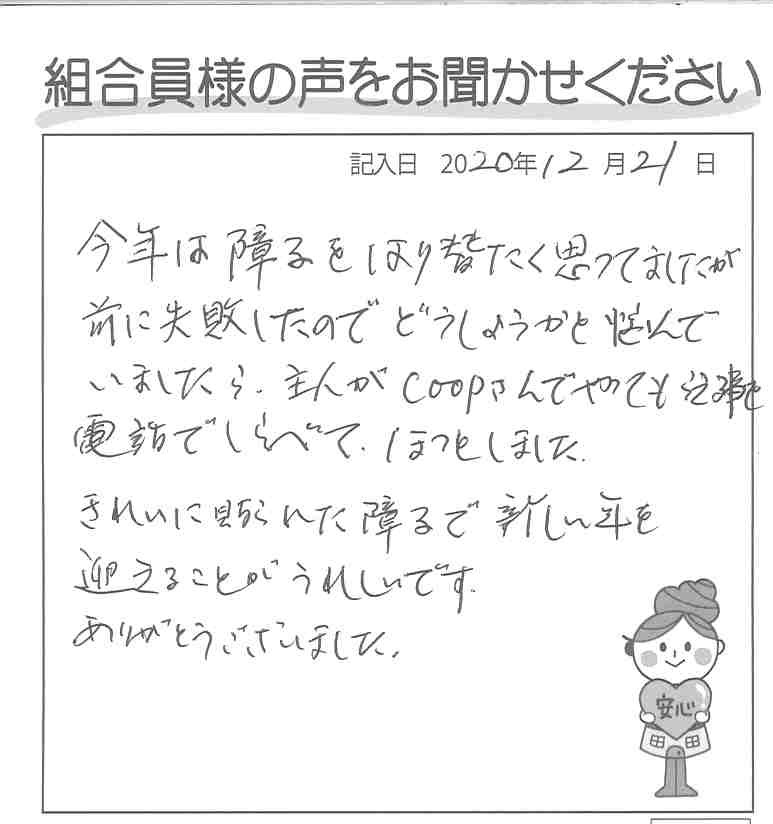 組合員様の声をお聞かせください
記入日 2020年12月21日
今年は障子をはり替たく思ってましたが
前に失敗したのでどうしようかと悩んで
いましたら、主人がcoopさんでやっても
電話でしらべて、ほっとしました。
きれいに貼られた障子で新しい年を
迎えることがうれしいです。
ありがとうございました。
安心